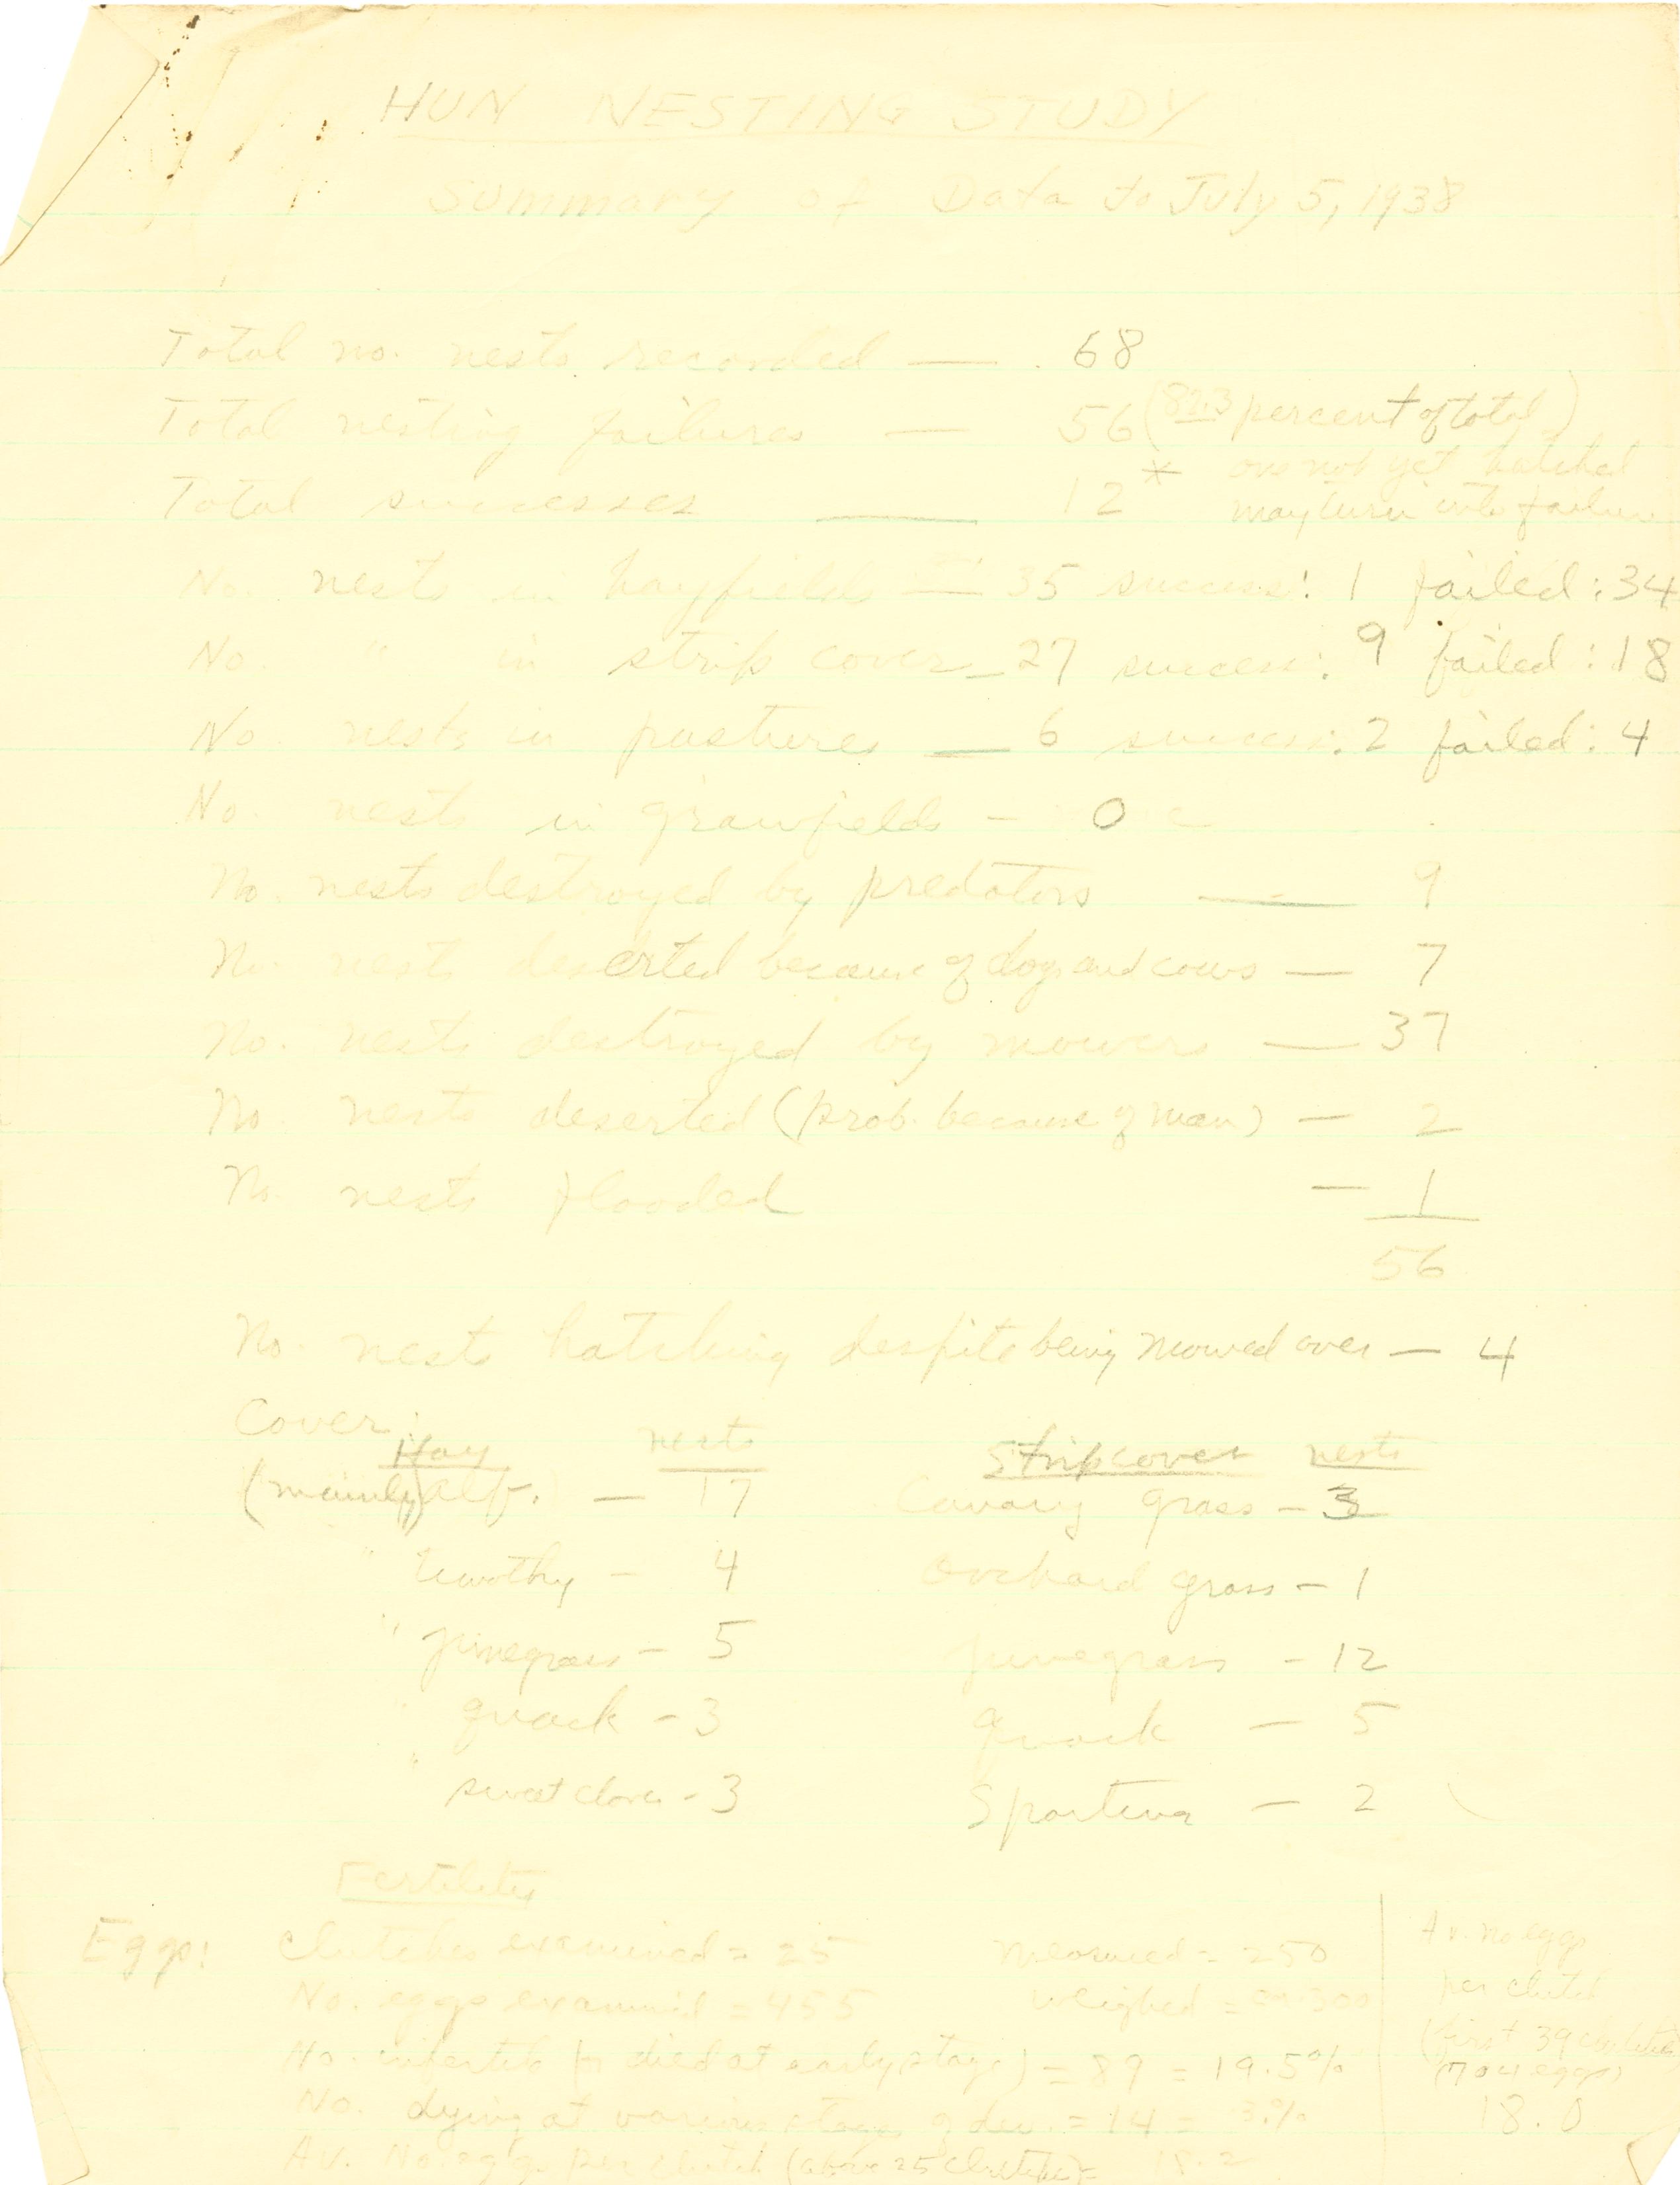 HUN NESTING STUDY
Summary of Data to July 5, 1938
Total no. nests recorded — 68
Total nesting failures — 56 (82.3 percent of total)
Total successes — 12 * one not yet hatched
may turn into failure
No. nests in hayfields — 35 success: 1 failed: 34
No. " in strip cover — 27 success: 9 failed: 18
No. nests in pastures — 6 success: 2 failed: 4
No. nests in grainfields - 0
No. nests destroyed by predators — 9
No. nests deserted because of dogs and cows — 7
No. nests destroyed by mowers — 37
No. nests deserted (prob. because of man) — 2
No. nests flooded — 1
56
No. nests hatching despite being mowed over — 4
Cover:
Hay nests Stripcover nests
(mainly) Alf. — 17 Canary grass - 3
" timothy - 4 Orchard grass - 1
" junegrass - 5 junegrass - 12
" quack - 3 quack — 5
" sweet clover - 3 Spartina — 2
Fertility
Eggs: Clutches examined = 25 measured = 250
No. eggs examined = 455 weighed = 300
No. infertile (or died at early stage) = 89 = 19.5%
No. dying at various stages of dev. = 14 = 3.%
Av. No. eggs per clutch (above 25 clutches) = 18.2
Av. no eggs
per clutch
(first 39 clutches
(704 eggs)
18.0